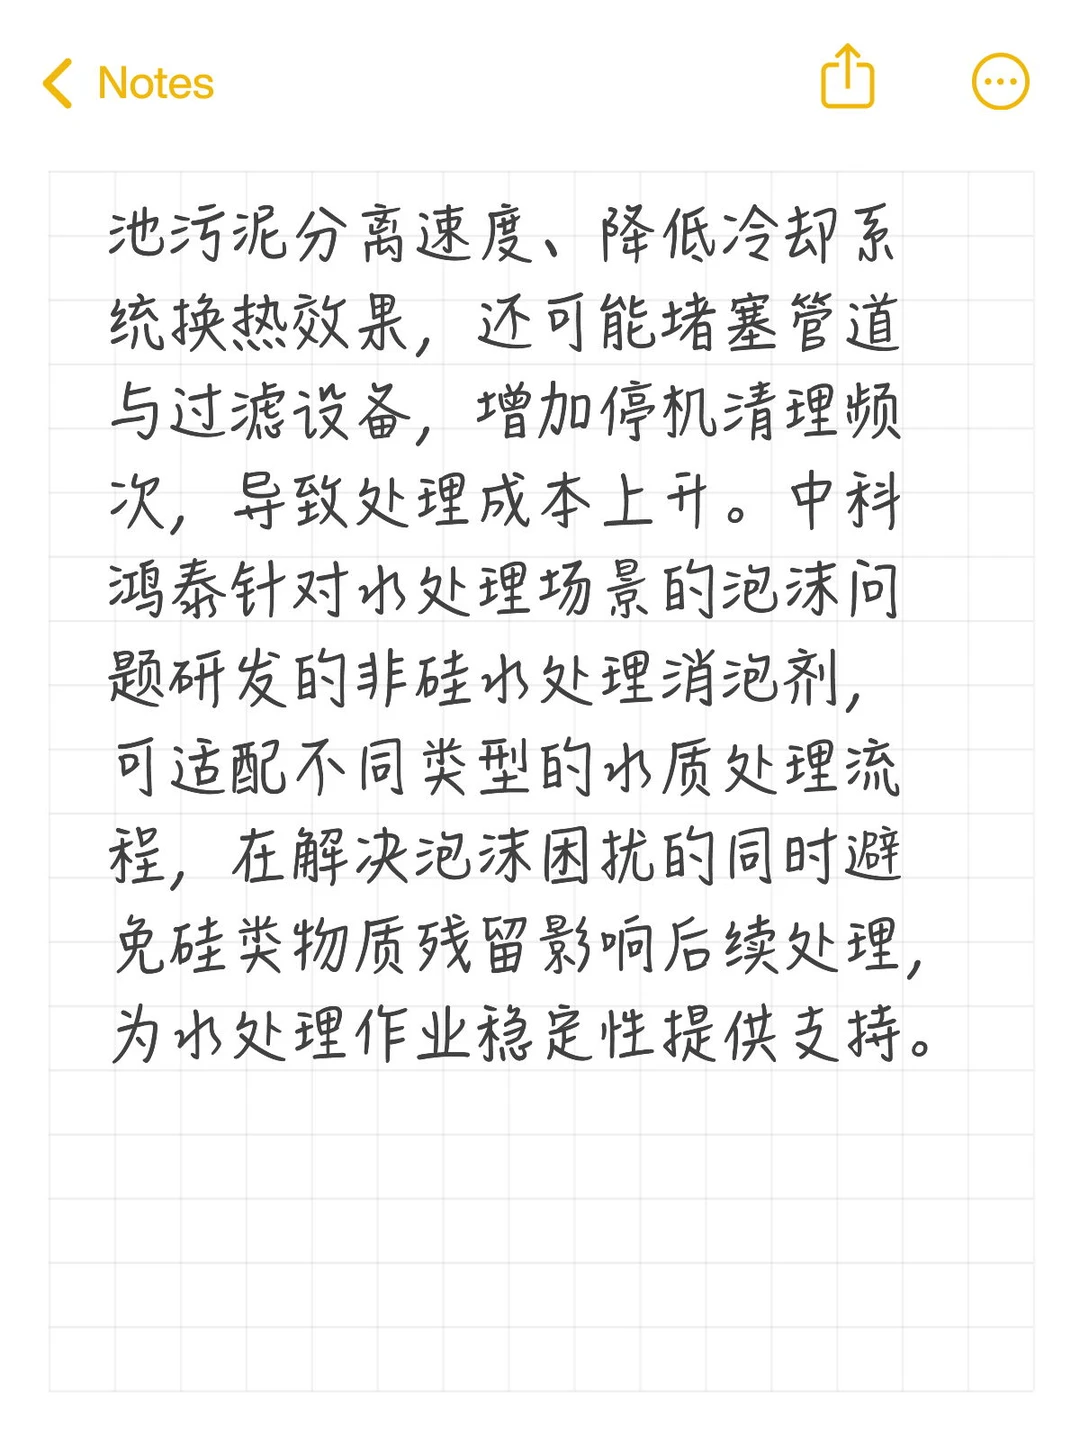 Notes
池污泥分离速度、降低冷却系
统换热效果，还可能堵塞管道
与过滤设备，增加停机清理频
次，导致处理成本上升。中科
鸿泰针对水处理场景的泡沫问
题研发的非硅水处理消泡剂，
可适配不同类型的水质处理流
程，在解决泡沫困扰的同时避
免硅类物质残留影响后续处理，
为水处理作业稳定性提供支持。